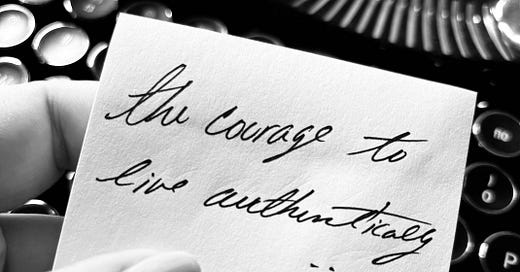 the courage to
live authentically
no
P